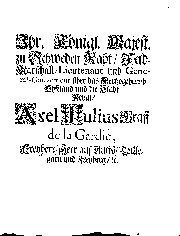 Ihr. Königl. Majest.
zu Schweden Raht/ Feld-
Marschall-Lieutenant und Gene-
ral-Gouverneur über das Hertzogthumb
Ehstland und die Stadt
Reval/
Axel Julius Graff
de la Gardie,
Freyherr/ Herr auff